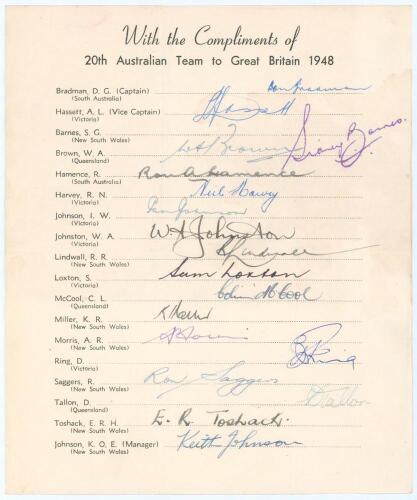 With the Compliments of
20th Australian Team to Great Britain 1948
Bradman, D. G. (Captain) Don Bradman
(South Australia)
Hassett, A. L. (Vice Captain) A L Hassett
(Victoria)
Barnes, S. G. Sidney Barnes.
(New South Wales)
Brown, W. A. W A Brown
(Queensland)
Hamence, R. Ron A Hamence
(South Australia)
Harvey, R. N. Neil Harvey
(Victoria)
Johnson, I. W. Ian Johnson
(Victoria)
Johnston, W. A. W. A Johnston
(Victoria)
Lindwall, R. R. R Lindwall
(New South Wales)
Loxton, S. Sam Loxton
(Victoria)
McCool, C. L. Colin McCool
(Queensland)
Miller, K. R. K Miller
(New South Wales)
Morris, A. R. A R Morris
(New South Wales)
Ring, D. D Ring
(Victoria)
Saggers, R. Ron Saggers
(New South Wales)
Tallon, D. D Tallon
(Queensland)
Toshack, E. R. H. E. R. Toshack.
(New South Wales)
Johnson, K. O. E. (Manager) Keith Johnson
(New South Wales)